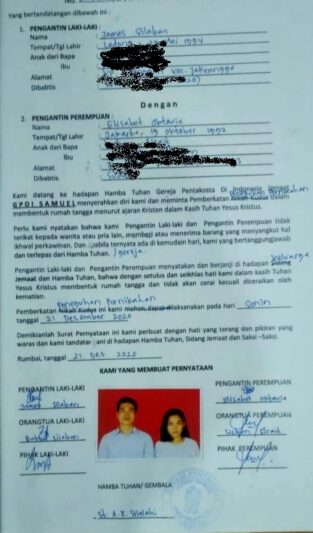 Yang bertandatangan dibawah ini :
1. PENGANTIN LAKI-LAKI :
Nama James Silaban
Tempat/Tgl Lahir 1994
Anak dari Bapa
Ibu
Alamat
Dibabtis
Dengan
2. PENGANTIN PEREMPUAN :
Nama Elisabet Oktavia
Tempat/Tgl Lahir Jakarta, 19 Oktober 1992
Anak dari Bapa
Ibu
Alamat
Dibabtis
Kami datang ke hadapan Hamba Tuhan Gereja Pentakosta Di Indonesia Jemaat
GPDI SAMUEL menyerahkan diri kami dan meminta Pemberkatan Nikah Kudus dalam
membentuk rumah tangga menurut ajaran Kristen dalam Kasih Tuhan Yesus Kristus.
Perlu kami nyatakan bahwa kami Pengantin Laki-laki dan Pengantin Perempuan tidak
terikat kepada wanita atau pria lain, memberi atau menerima barang yang menyangkut hal
ikhwal perkawinan. Dan apabila ternyata ada di kemudian hari, kami yang bertanggungjawab
dan terlepas dari Hamba Tuhan. / gereja.
Pengantin Laki-laki dan Pengantin Perempuan menyatakan dan berjanji di hadapan Sidang keluarga
Jemaat dan Hamba Tuhan, bahwa dengan setulus dan seikhlas hati kami dalam Kasih Tuhan
Yesus Kristus membentuk rumah tangga dan tidak akan cerai kecuali diceraikan oleh
kematian.
peneguhan pernikahan
Pemberkatan Nikah Kudus ini kami mohon dapat dilaksanakan pada hari Senin
tanggal 21 Desember 2020
Demikianlah Surat Pernyataan ini kami perbuat dengan hati yang terang dan pikiran yang
waras dan kami tandatangani di hadapan Hamba Tuhan, Sidang Jemaat dan Saksi –Saksi.
Rumbai, tanggal 21 Des 2020
KAMI YANG MEMBUAT PERNYATAAN
PENGANTIN LAKI-LAKI
James Silaban
PENGANTIN PEREMPUAN
Elisabet Oktavia
ORANGTUA LAKI-LAKI
Silaban
ORANGTUA PEREMPUAN
PIHAK LAKI-LAKI
PIHAK PEREMPUAN
HAMBA TUHAN/ GEMBALA
St. A.R. Silalahi